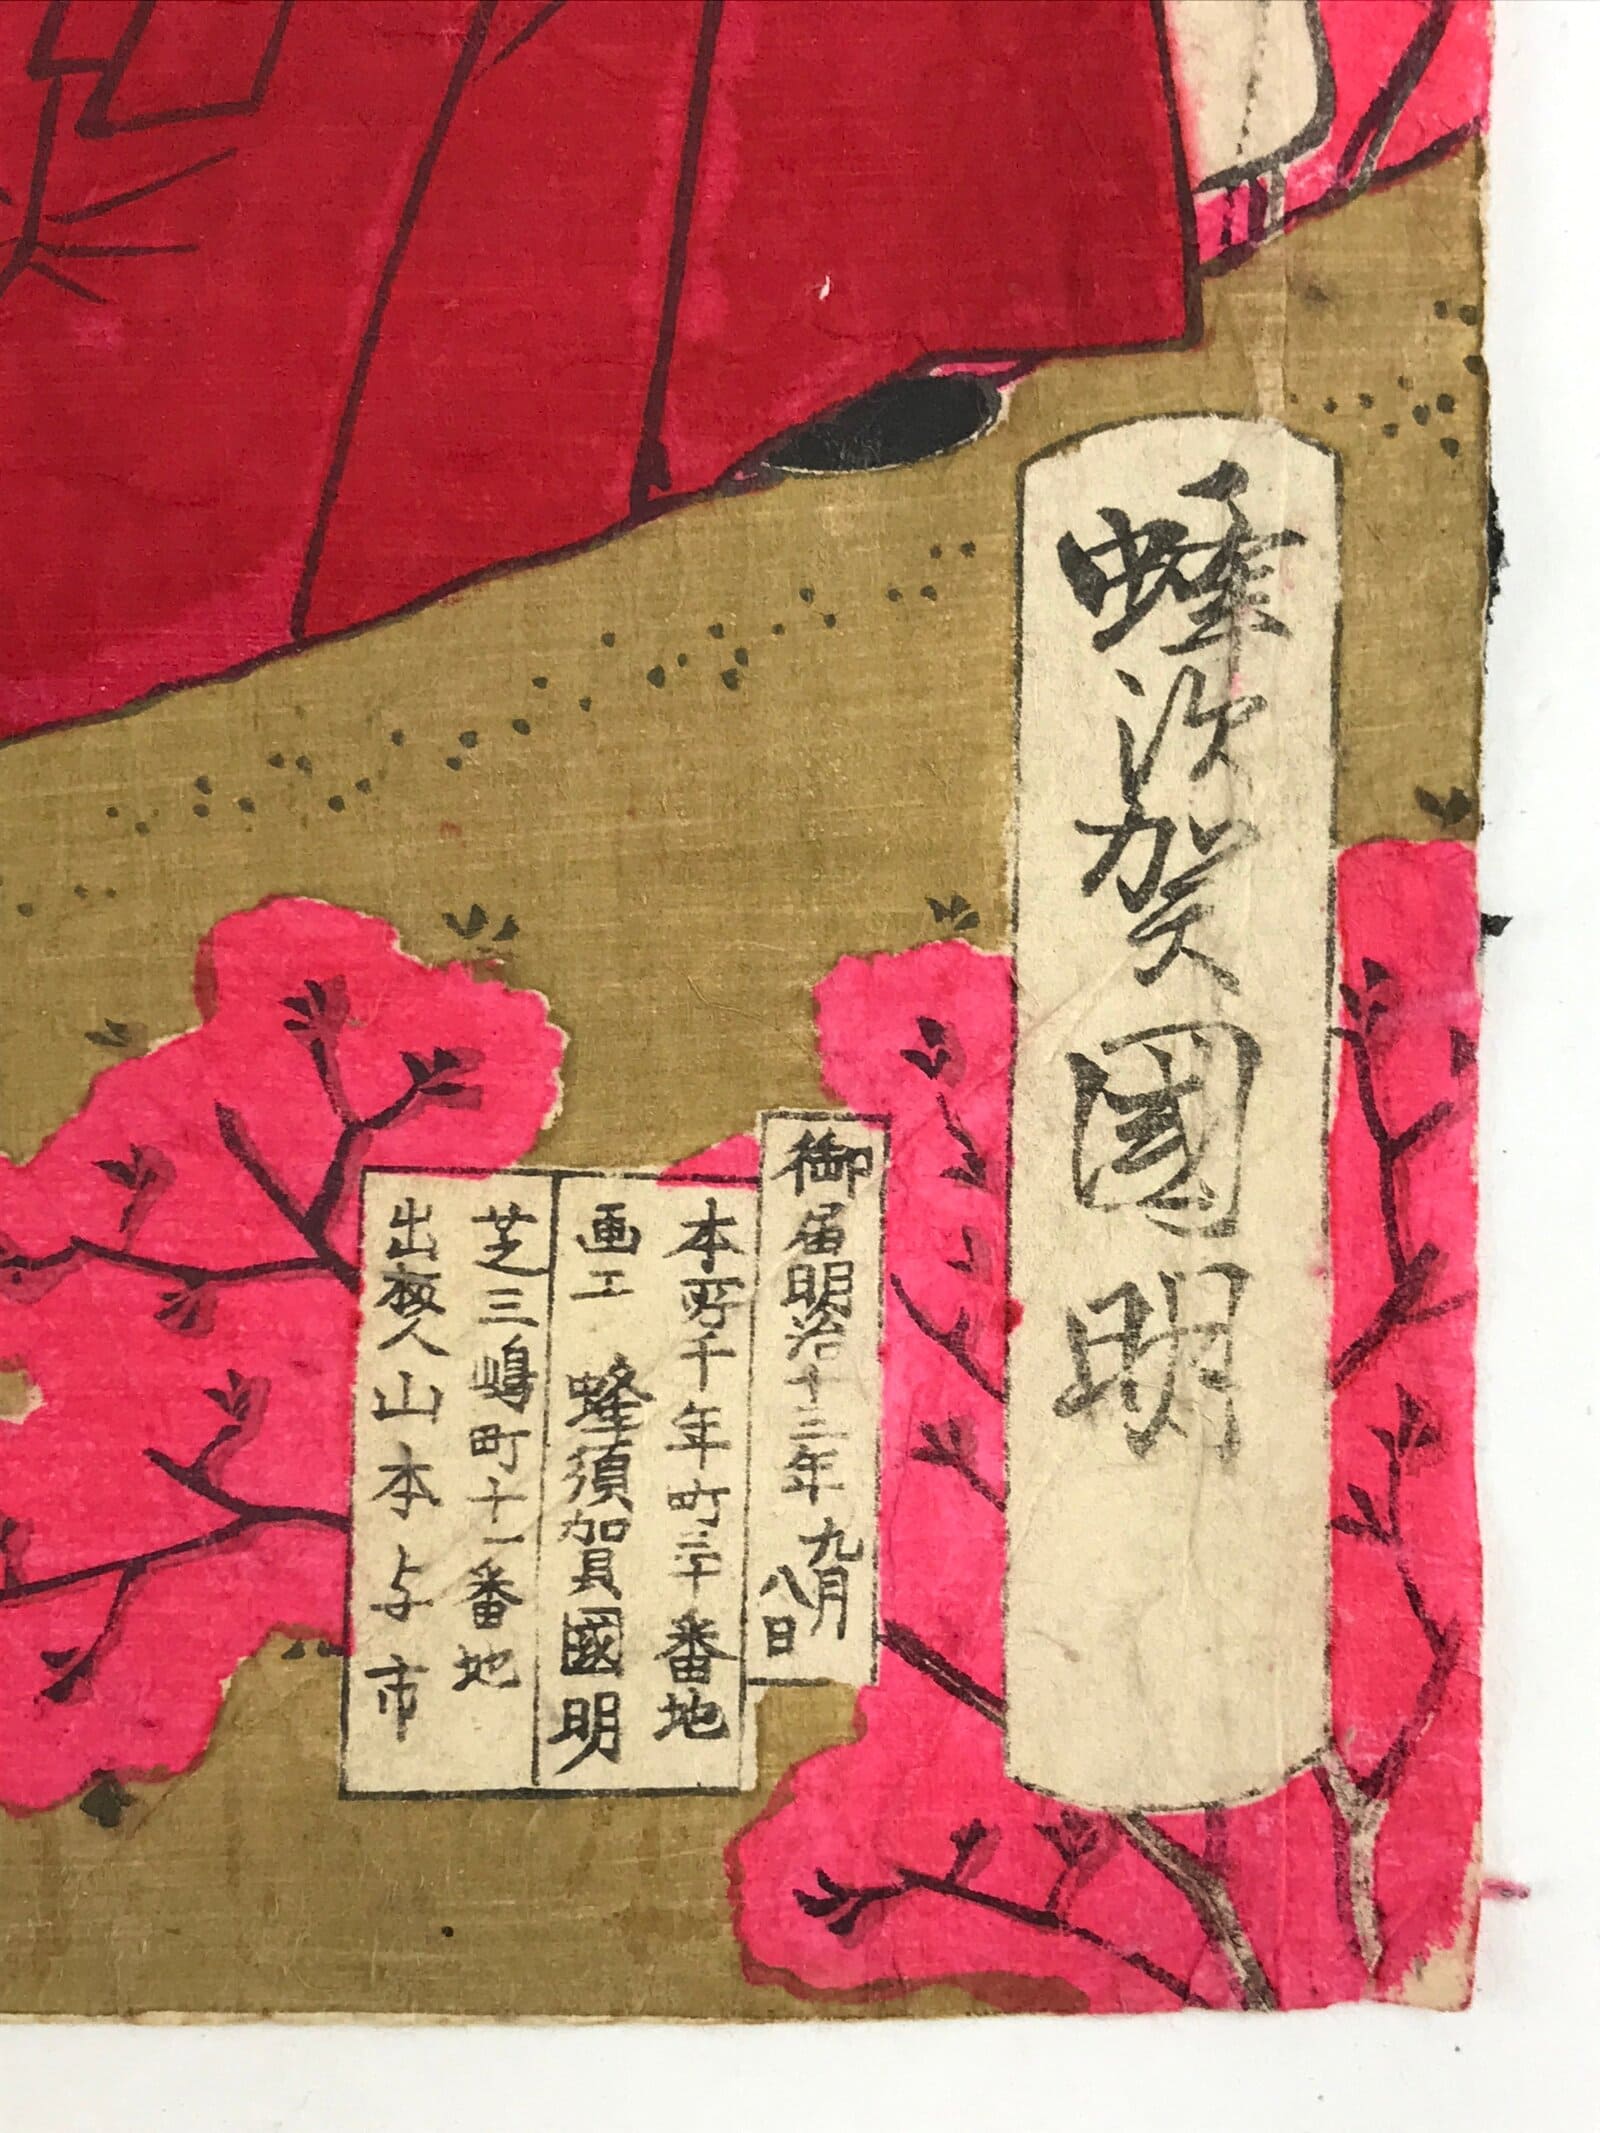 蜂須賀國明
御届明治十三年九月八日
本所千年町三十番地
画工 蜂須賀國明
芝三嶋町十一番地
出板人山本与市